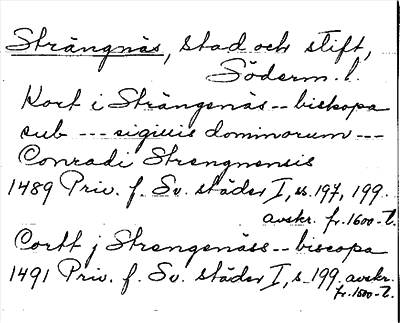 Strängnäs, stad och stift,
Söderm. l.
Kort i Strängenäs -- biskopa
sub --- sigillis dominorum ---
Conradi Strengnensis
1489 Priv. f. Sv. städer I, ss. 197, 199.
avskr. fr. 1600-t.
Cortt j Strengenäss -- biscopa
1491 Priv. f. Sv. städer I, s. 199. avskr.
fr. 1500-t.